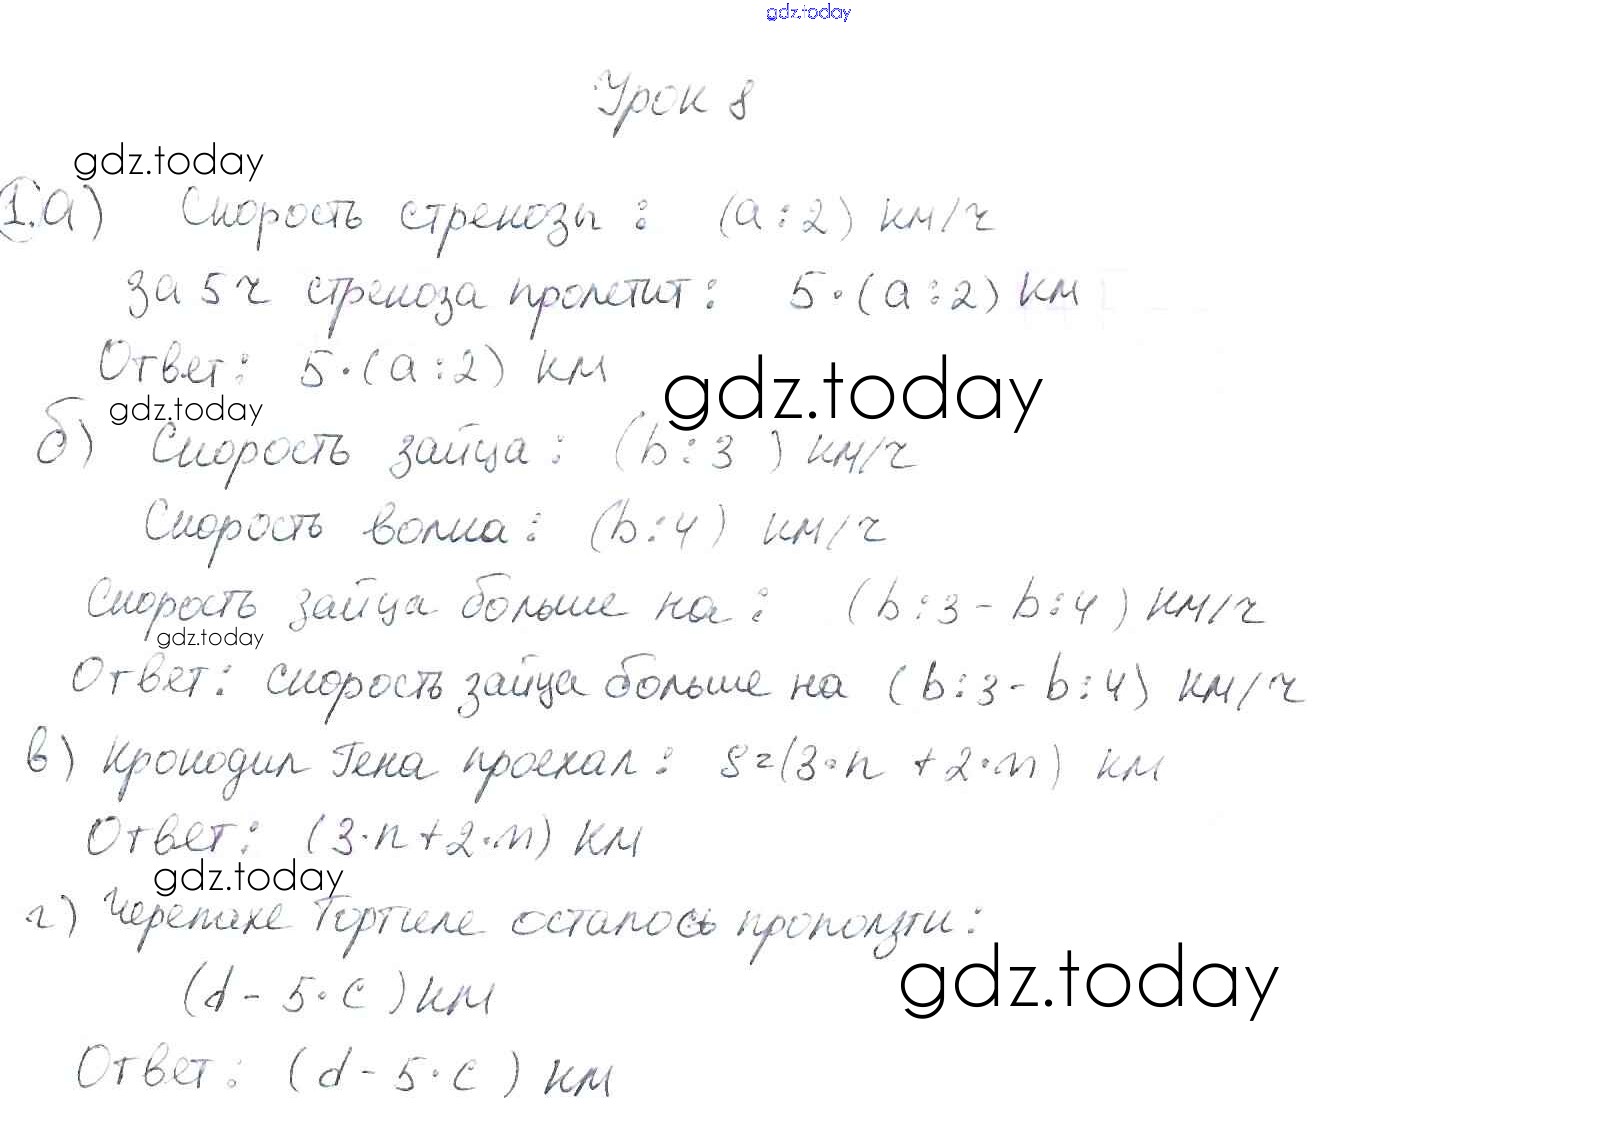 gdz.today
Урок 8
gdz.today
1.а) Скорость стрекозы : (a : 2) км/ч
за 5 ч стрекоза пролетит : 5 · (a : 2) км
Ответ : 5 · (a : 2) км
gdz.today
gdz.today
б) Скорость зайца : (b : 3 ) км/ч
Скорость волка : (b : 4) км/ч
Скорость зайца больше на : (b : 3 - b : 4) км/ч
gdz.today
Ответ : скорость зайца больше на (b : 3 - b : 4) км/ч
в) Крокодил Гена проехал : S = (3 · n + 2 · m) км
Ответ : (3 · n + 2 · m) км
gdz.today
г) Черепахе Тортиле осталось проползти :
(d - 5 · c ) км
gdz.today
Ответ : (d - 5 · c ) км